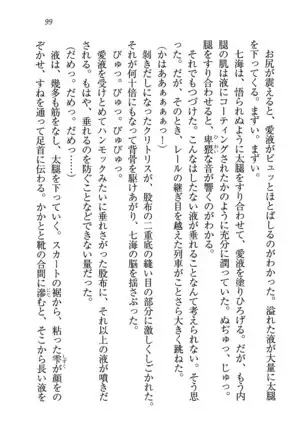 99
お尻が震えると、愛液がビュッとほとばしるのがわかった。溢れた液が大量に太腿
を下ってくる。まずい。まずい。
七海は、悟られぬように太腿をすり合わせて、愛液を塗りひろげる。だが、もう内
腿の肌は液にコーティングされたかのように充分に潤っていた。ぬぢゅっ、じゅっ。
太腿をすり合わせると、卑猥な音が響くのがわかる。
(かはあああぁぁぁっ!)
それでもつづけた。こんなはしたない液が垂れることなんて考えられない。そう思
った。だが、そのとき、レールの継ぎ目を越えた列車がことさら大きく跳ねた。
剝きだしになったクリトリスが、股布の二重底の縫い目の部分に激しくしごかれた。
それが何十倍にもなって背骨を駆けあがり、七海の脳を揺さぶった。
びゅっ。びゅっ。びゅびゅっ。
愛液を受けとめてハンモックみたいに垂れさがった股布に、それ以上の液が噴きだ
される。もはや、垂れるのを防ぐことなどできない量だった。
(だめっ。だめっ。だめっ……)
液は、幾多も筋をなし、太腿を下っていく。スカートの裾から、粘った雫が顔をの
ぞかせ、すねを通って足首に伝わる。かかとと靴の合間に滲むと、そこから長い液を